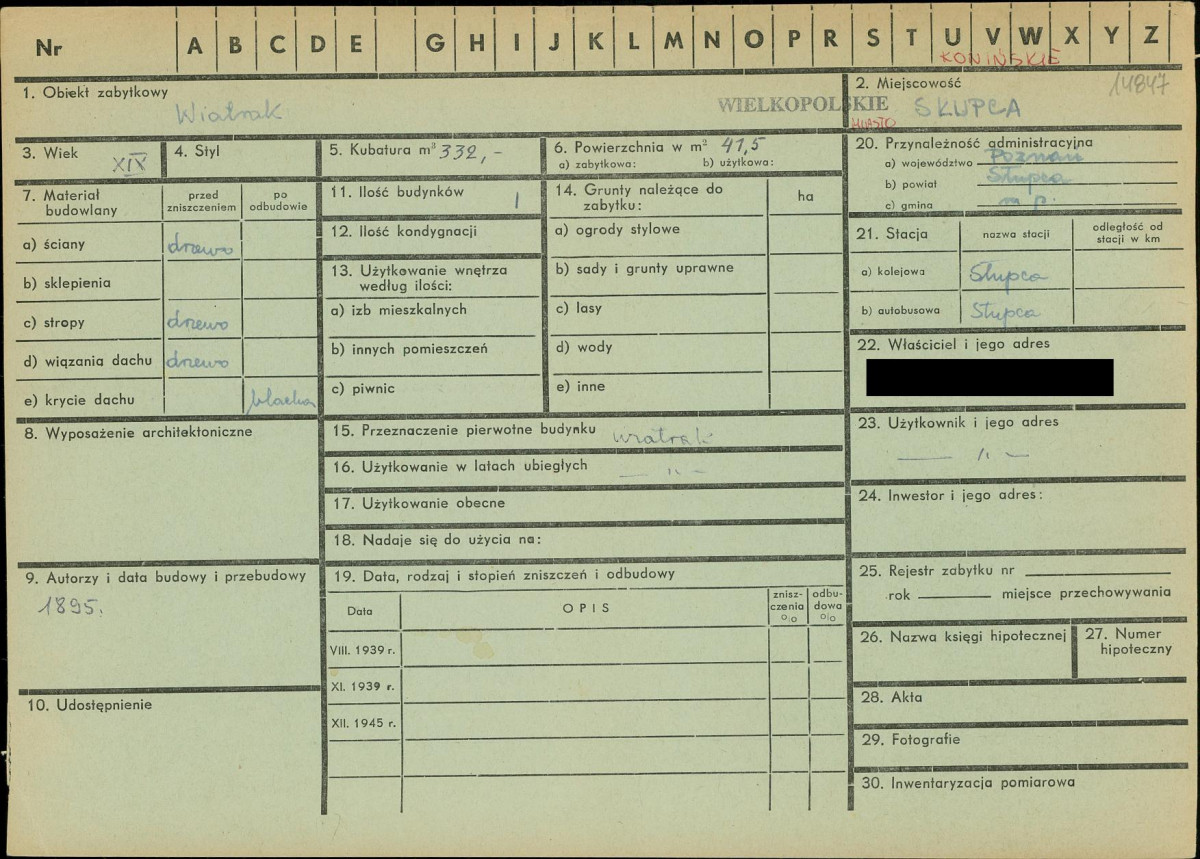 Nr A B C D E G H I J K L M N O P R S T U V W X Y Z
KONIŃSKIE
1. Obiekt zabytkowy
Wiatrak
WIELKOPOLSKIE
2. Miejscowość
14847
MIASTO
SŁUPCA
3. Wiek XIX
4. Styl
5. Kubatura m³ 332,-
6. Powierzchnia w m² 41,5
a) zabytkowa: b) użytkowa:
20. Przynależność administracyjna
a) województwo Poznań
b) powiat Słupca
c) gmina m p.
7. Materiał budowlany
przed zniszczeniem
po odbudowie
a) ściany drzewo
b) sklepienia
c) stropy drzewo
d) wiązania dachu drzewo
e) krycie dachu blacha
11. Ilość budynków 1
12. Ilość kondygnacji
13. Użytkowanie wnętrza
według ilości:
a) izb mieszkalnych
b) innych pomieszczeń
c) piwnic
14. Grunty należące do
zabytku:
ha
a) ogrody stylowe
b) sady i grunty uprawne
c) lasy
d) wody
e) inne
21. Stacja
nazwa stacji
odległość od
stacji w km
a) kolejowa Słupca
b) autobusowa Słupca
22. Właściciel i jego adres
8. Wyposażenie architektoniczne
15. Przeznaczenie pierwotne budynku wiatrak
16. Użytkowanie w latach ubiegłych — „ —
17. Użytkowanie obecne
18. Nadaje się do użycia na:
23. Użytkownik i jego adres
— „ —
24. Inwestor i jego adres:
9. Autorzy i data budowy i przebudowy
1895.
19. Data, rodzaj i stopień zniszczeń i odbudowy
Data
OPIS
znisz-
czenia
%
odbu-
dowa
%
VIII. 1939 r.
XI. 1939 r.
XII. 1945 r.
25. Rejestr zabytku nr
rok miejsce przechowywania
26. Nazwa księgi hipotecznej
27. Numer
hipoteczny
10. Udostępnienie
28. Akta
29. Fotografie
30. Inwentaryzacja pomiarowa